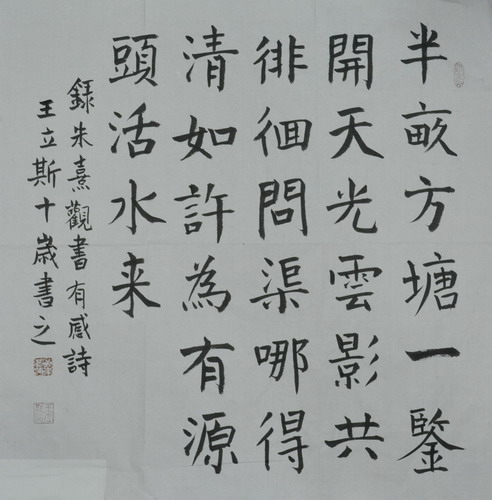 半畝方塘一鑒
開天光雲影共
徘徊問渠哪得
清如許為有源
頭活水来
録朱熹觀書有感詩
王立斯十歲書之